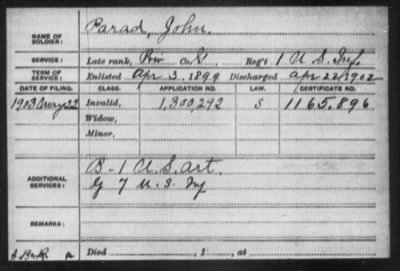 NAME OF SOLDIER: Parad, John.
SERVICE: Late rank, Co. K Reg't 1 U S Inf.
TERM OF SERVICE: Enlisted Apr 3, 1899 Discharged Apr 22, 1902
DATE OF FILING. CLASS. APPLICATION NO. LAW. CERTIFICATE NO.
1903 May 22 Invalid, 1,300,292 S 1165,896
Widow,
Minor,
ADDITIONAL SERVICES: B-1 U.S. Art.
G 7 U.S. Inf
REMARKS:
Died , 1 , at